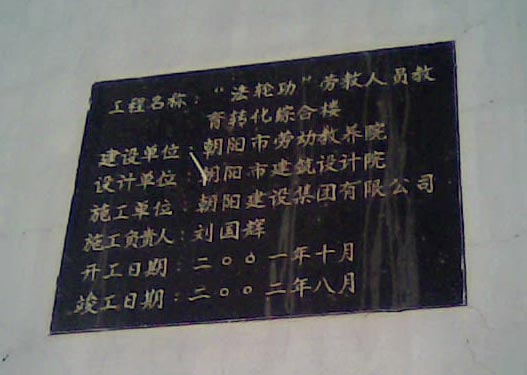 工程名称：“法轮功”劳教人员教
育转化综合楼
建设单位：朝阳市劳动教养院
设计单位：朝阳市建筑设计院
施工单位：朝阳建设集团有限公司
施工负责人：刘国辉
开工日期：二００一年十月
竣工日期：二００二年八月